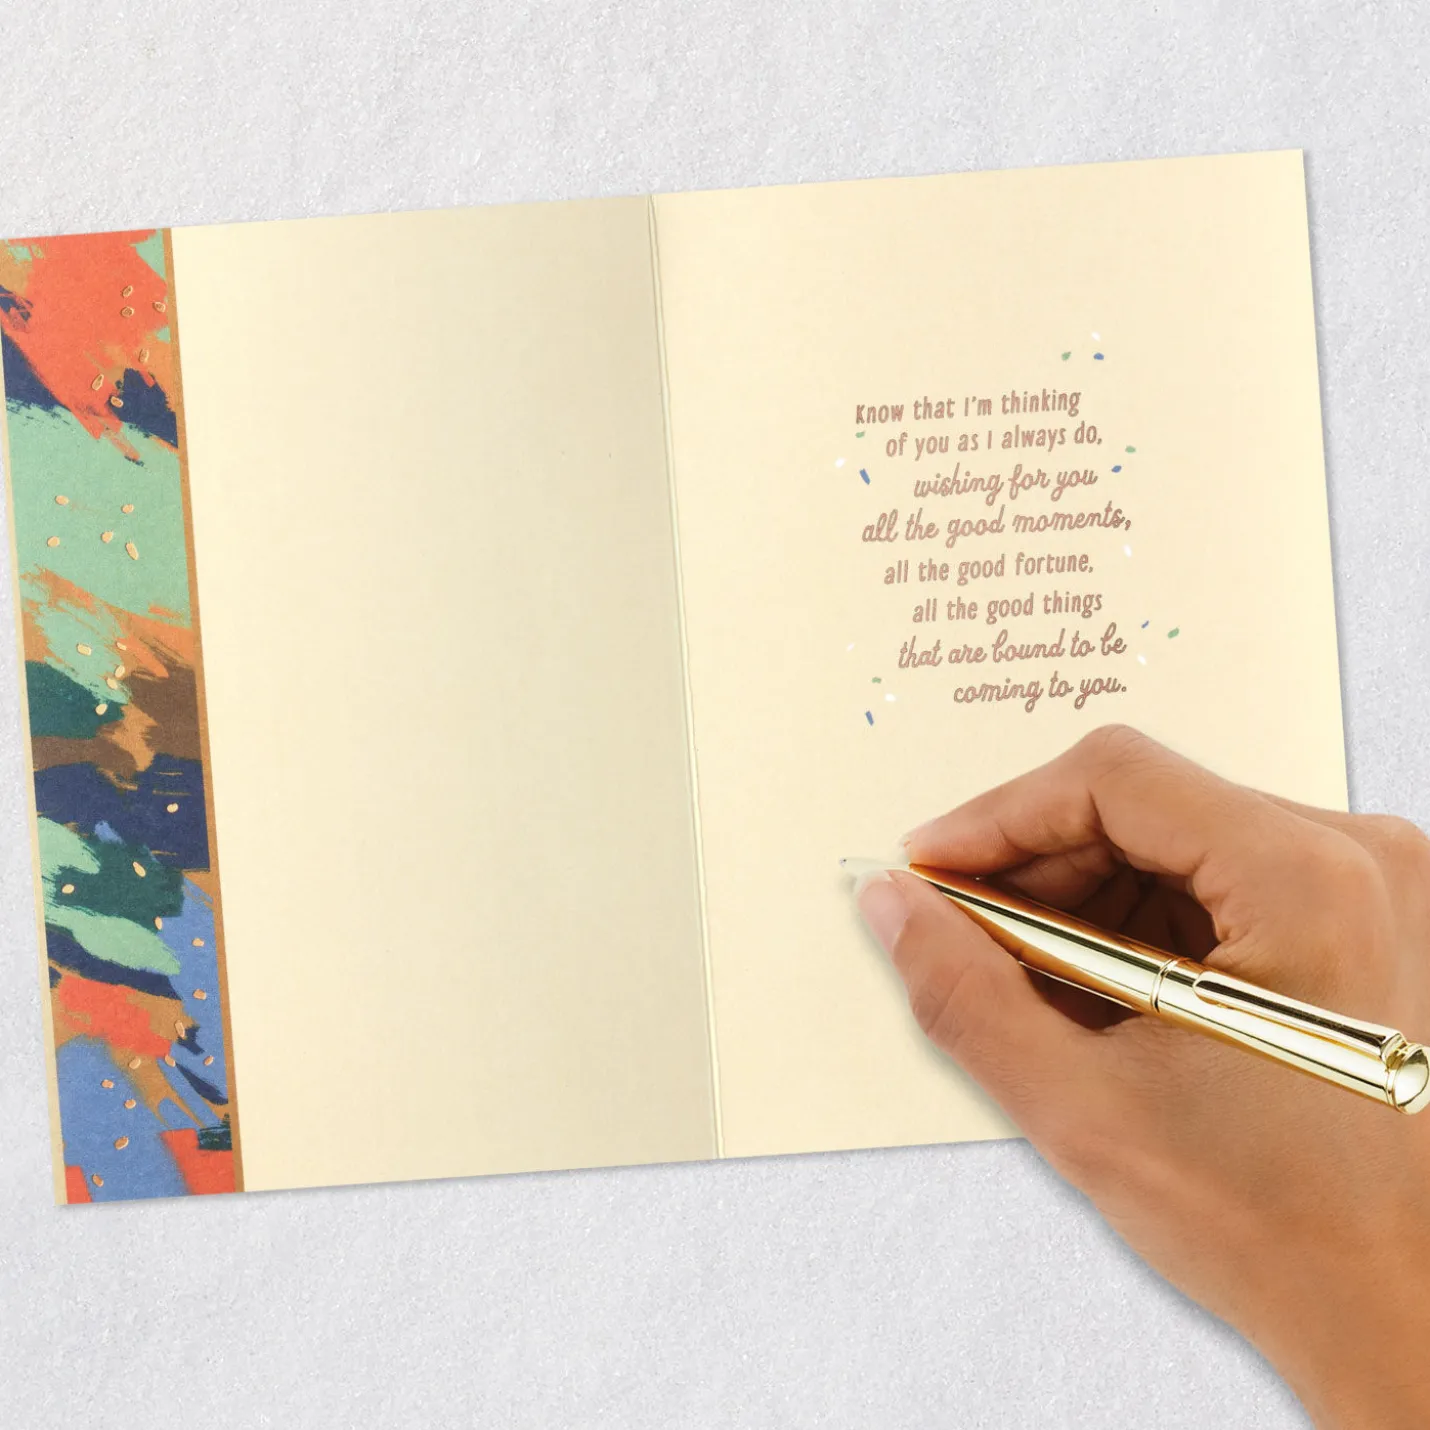 Know that I'm thinking
of you as I always do,
wishing for you
all the good moments,
all the good fortune,
all the good things
that are bound to be
coming to you.